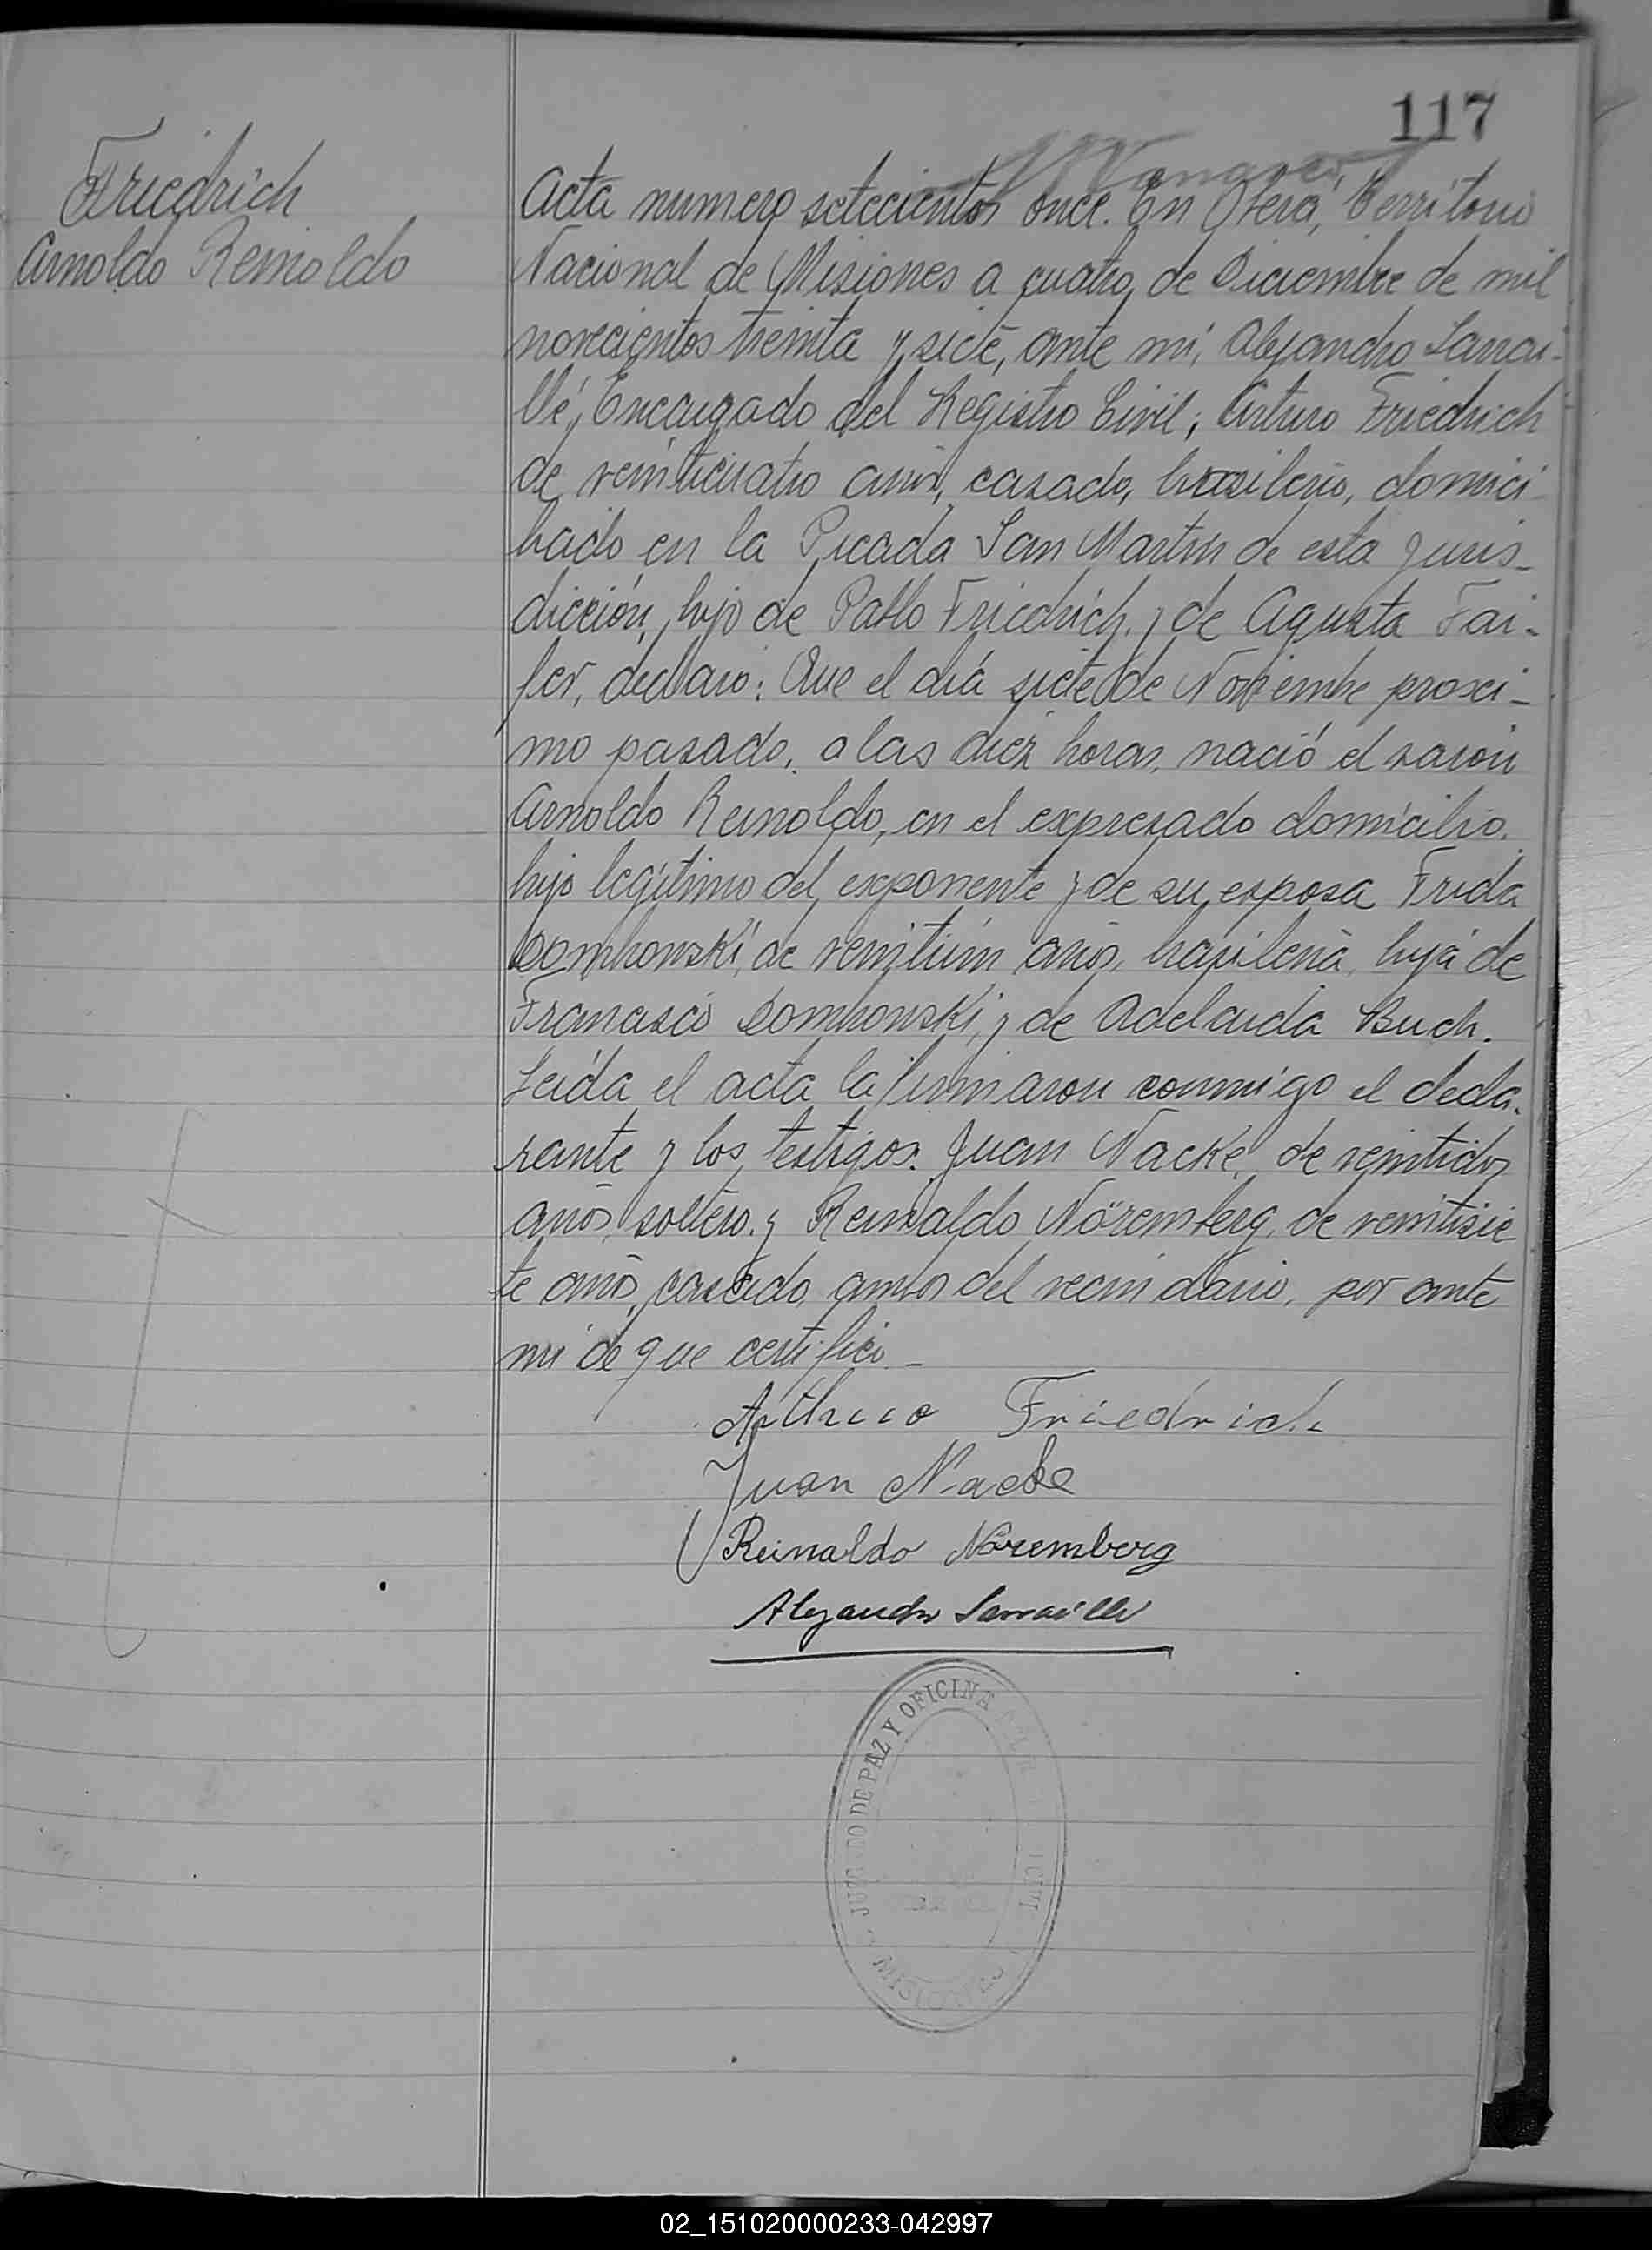 117
Friedrich
Arnoldo Reinoldo
Acta numero setecientos once. En Oberá, Territorio
Nacional de Misiones a cuatro de Diciembre de mil
novecientos treinta y siete, ante mi, Alejandro Sarrai-
llé, Encargado del Registro Civil; Arturo Friedrich
de veinticuatro años, casado, brasileño, domici-
liado en la Picada San Martin de esta juris-
dicción, hijo de Pablo Friedrich y de Agusta Fai-
fer, declaro: Que el día siete de Noviembre proxi-
mo pasado, a las diez horas, nació el varon
Arnoldo Reinoldo, en el expresado domicilio.
hijo legitimo del exponente y de su esposa Frida
Dombowski, de veintiún años, brasileña, hija de
Francisco Dombowski, y de Adelaida Buch.
Leída el acta la firmaron conmigo el decla-
rante y los testigos: Juan Nacke, de veintidos
años, soltero, y Reinaldo Nöremberg, de veintisie-
te años, casado, ambos del vecindario, por ante
mi de que certifico. -
Arthuro Friedrich
Juan Nacke
Reinaldo Nöremberg
Alejandro Sarraillé
JUZGADO DE PAZ Y OFICINA
02_151020000233-042997